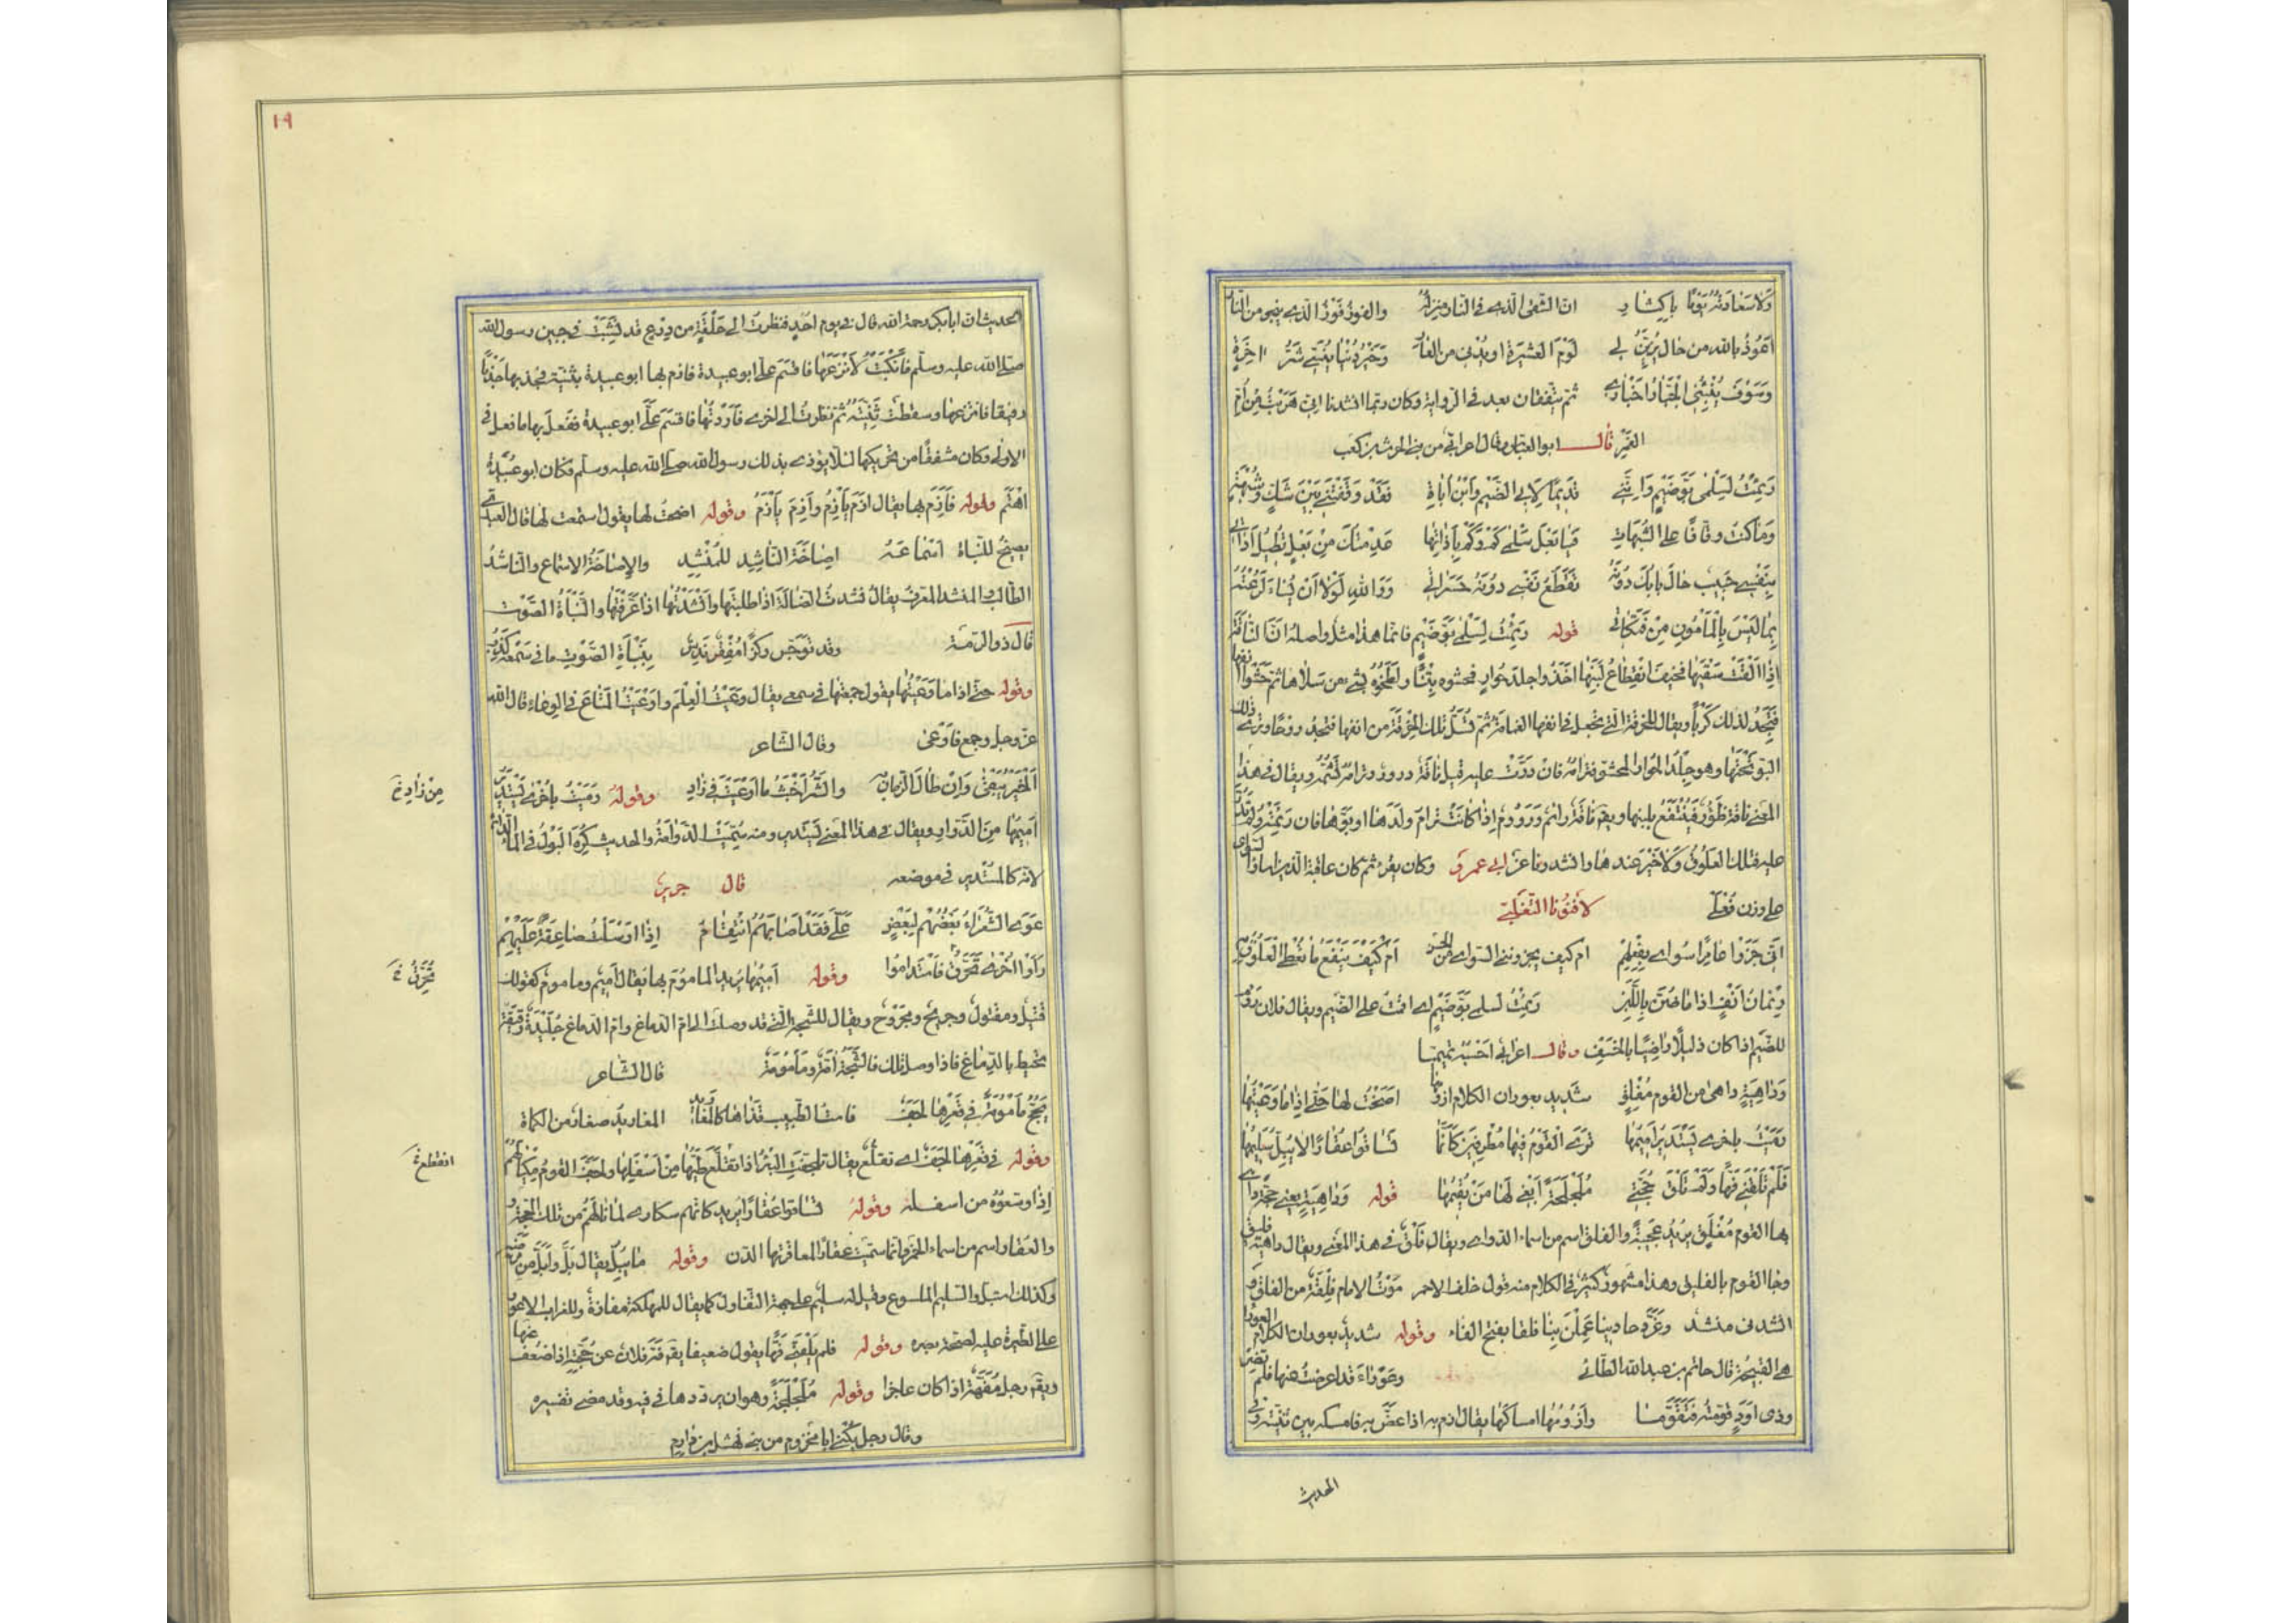 ولا سعادته يوما باكثار ان الشقى الذى فى النار منزله والفوز فوز الذى ينجو من النار
اعوذ بالله من حال يزين لى لوم العشيرة او يدنى من العار وخير دنيا ينسى شر اخرة
وسوف ينبئنى الجبار اخبارى ثم يتفقان بعد فى الرواية وكان ربما انشدنا انى هربت من ام
الغمر قال ابو العباس وقال اعرابى من بنى الحرث بن كعب
رئمت لسلمى بو ضيم واننى قديما لابى الضيم وابن اباة فقد وقفتنى بين شك وشبهة
وما كنت وقافا على الشبهات فيا بعل سلمى كم وكم باذاتها عدمتك من بعل تطيل اذاتى
بنفسى حبيب حال بابك دونه تقطع نفسى دونه حسراتى ووالله لولا ان تساء لرعته
بما ليس بالمامون من فتكاتى قوله رئمت لسلمى بو ضيم فانما هذا مثل واصله ان الناقة
اذا القت سقبها فخيف انقطاع لبنها اخذوا جلد حوار فحشوه تبنا ولطخوه بشىء من سلاها ثم حشوا انفها
فتجد لذلك كربا ويقال للخرقة التى تجعل فى انفها الغمامة ثم تسل تلك الخرقة من انفها فتجد روحا وترى ذلك
البو تحتها وهو جلد الحوار المحشو فترامه فان درت عليه قيل ناقة درور وترامه تشمه ويقال فى هذا
المعنى ناقة ظؤر فينتفع بلبنها ويق ناقة رائم ورؤوم اذا كانت ترام ولدها او بوها فان رئمته ولم تدر
عليه فتلك العلوق ولا خير عندها وانشدونا عن ابى عمرو وكان يقرء ثم كان عاقبة الذين اساؤا السوأى
على وزن فعلى لافنون التغلبى
انى جزوا عامرا سوأى بفعلهم ام كيف يجزوننى السوأى من الحسن ام كيف ينفع ما تعطى العلوق به
رئمان انف اذا ما ضن باللبن رئمت لسلمى بو ضيم اى اقمت على الضيم ويقال فلان رؤم
للضيم اذا كان ذليلا راضيا بالخسف وقال اعرابى احسبه تميميا
وداهية داهى من القوم مفلق شديد بعوران الكلام ازومها اصخت لها حتى اذا ما وعيتها
رميت باخرى يستدير اميمها ترى القوم فيها مطرقين كانما تساقوا عقارا لا يبل سليمها
فلم تلفنى فها ولم تلق حجتى ملجلجة ابغى لها من يقيمها قوله وداهية يعنى حجة داهى
بها القوم مفلق يريد عجيبة والفلق اسم من اسماء الدواهى ويقال فلق فى هذا المعنى ويقال داهية فليق
وجا القوم بالفليق وهذا مشهور كثير فى الكلام منه قول خلف الاحمر موت الامام فلقة من الفلق و
انشدنى منشد وغرد حادينا عملن بنا فلقا بفتح الفاء وقوله شديد بعوران الكلام العورا
هى القبيحة قال حاتم بن عبد الله الطائى وعوراء قد اعرضت عنها فلم تضر
وذى اود قومته فتقوما وازومها امساكها يقال ازم به اذا عض به فامسكه بين ثنيتيه وفى
الحديث
١٩
الحديث ان ابا بكر رحمه الله قال فى يوم احد فنظرت الى حلقة من درع قد نشبت فى جبين رسول الله
صلى الله عليه وسلم فانكببت لانزعها فاقسم على ابو عبيدة فازم بها ابو عبيدة بثنيته فجذبها جذبا
رفيقا فانتزعها وسقطت ثنيته ثم نظرت الى اخرى فاردتها فاقسم على ابو عبيدة ففعل بها ما فعل فى
الاولى وكان مشفقا من تحريكهما لئلا يؤذى بذلك رسول الله صلى الله عليه وسلم فكان ابو عبيدة
اهتم وقوله فازم بها يقال ازم يأزم وازم يأزم وقوله اصخت لها يقول استمعت لها قال العبدى
يصيخ للنباة اسماعه اصاخة الناشد للمنشد والاصاخة الاستماع والناشد
الطالب والمنشد المعرف يقال نشدت الضالة اذا طلبتها وانشدتها اذا عرفتها والنبأة الصوت
قال ذو الرمة وقد توجس ركزا مقفر ندس بنبأة الصوت ما فى سمعه كذب
وقوله حتى اذا ما وعيتها يقول جمعتها فى سمعى يقال وعيت العلم واوعيت المتاع فى الوعاء قال الله
عز وجل وجمع فاوعى وقال الشاعر
الخير يبقى وان طال الزمان به والشر اخبث ما اوعيت فى زاد وقوله رميت باخرى يستدير
من زاد خ
اميمها من الدوار ويقال فى هذا المعنى يستدير ومنه سميت الدوامة والحديث كره البول فى الماء الدائم
لانه كالمستدير فى موضعه قال جرير
عوى الشعراء بعضهم لبعض على فقد اصابهم انتقام اذا ارسلت صاعقة عليهم
راوا اخرى تحرق فاستداموا وقوله اميمها يريد المأموم بها يقال اميم ومأموم كقولك
تحرق خ
قتيل ومقتول وجريح ومجروح ويقال للشجة التى قد وصلت الى ام الدماغ وام الدماغ جليدة رقيقة
تحيط بالدماغ فاذا وصل تلك فالشجة آمة ومأمومة قال الشاعر
يحج مأمومة فى قعرها لجف فاست الطبيب قذاها كالمغاريد المغاريد صغار من الكماة
وقوله فى قعرها لجف اى تقلع يقال تلجفت البئر اذا تقلع طيها من اسفلها ولجف القوم مكيالهم
انقطع خ
اذا وسعوه من اسفله وقوله تساقوا عقارا يريد كانهم سكارى لما نالهم من تلك الحجة
والعقار اسم من اسماء الخمر وانما سميت عقارا لمعاقرتها الدن وقوله ما يبل يقال بل وابل من مرضه
وكذلك استبل والسليم الملسوع وقيل له سليم على جهة التفاول كما يقال للمهلكة مفازة وللغراب الاعور
على الطيرة عليه لصحة بصره وقوله فلم يلفنى فها يقول ضعيفا يق فه فلان عن حجته اذا ضعف عنها
ويق رجل مفهة اذا كان عاجزا وقوله ملجلجة وهو ان يرددها فى فيه وقد مضى تفسيره
وقال رجل يكنى ابا مخزوم من بنى نهشل بن دارم